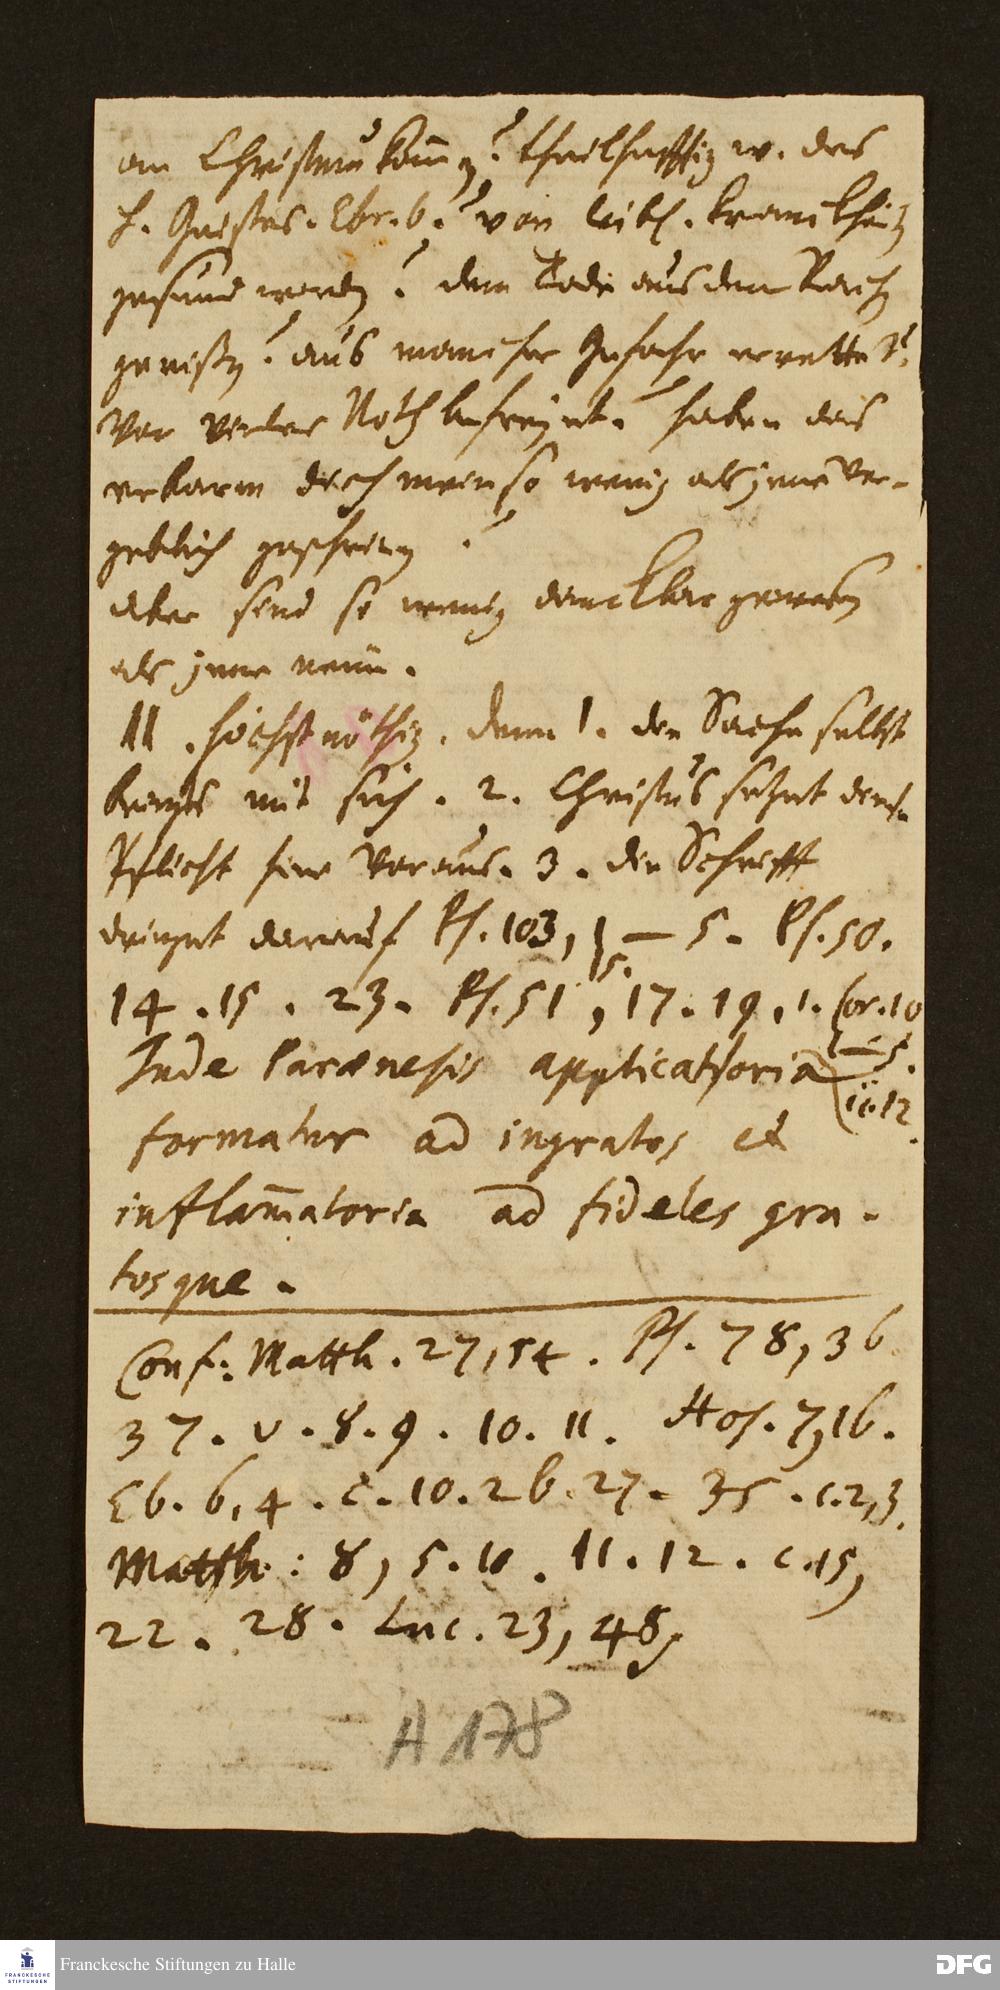 an Christum kom̄en? theilhafftig w. des
h. Geistes. Ebr. 6.? von leibl. kranckheit
gesund worden? dem Tode aus dem Rachen
gerissen? aus mancher Gefahr errettet?
Von vieler Noth befreyet? haben das
erbarm dich mein so wenig als jene ver-
geblich geschrien?
aber sind so wenig danckbar gewesen
als jene neun.
II. höchst nöthig. denn 1. die Sache selbst
bringts mit sich. 2. Christus sezet
Pflicht hier voraus. 3. die Schrifft
dringet darauf Ps. 103, 1 — 5. Ps. 50.
15.
14. 15. 23. Ps. 51, 17. 19, 1. Cor. 10
Inde Paraenesis applicatoria
— 5.
11. 12.
formatur ad ingratos et
inflam̄atoria ad fideles gra-
tosque.
Conf: Matth. 27, 54. Ps. 78, 36
37. v. 8. 9. 10. 11. Hos. 7, 16.
Eb. 6, 4. c. 10. 26. 27. 35. c. 2, 3.
Matth: 8, 5. 10. 11. 12. c. 15,
22. 28. Luc. 23, 48.
A 178
Franckesche Stiftungen zu Halle
FRANCKESCHE
STIFTUNGEN
DFG